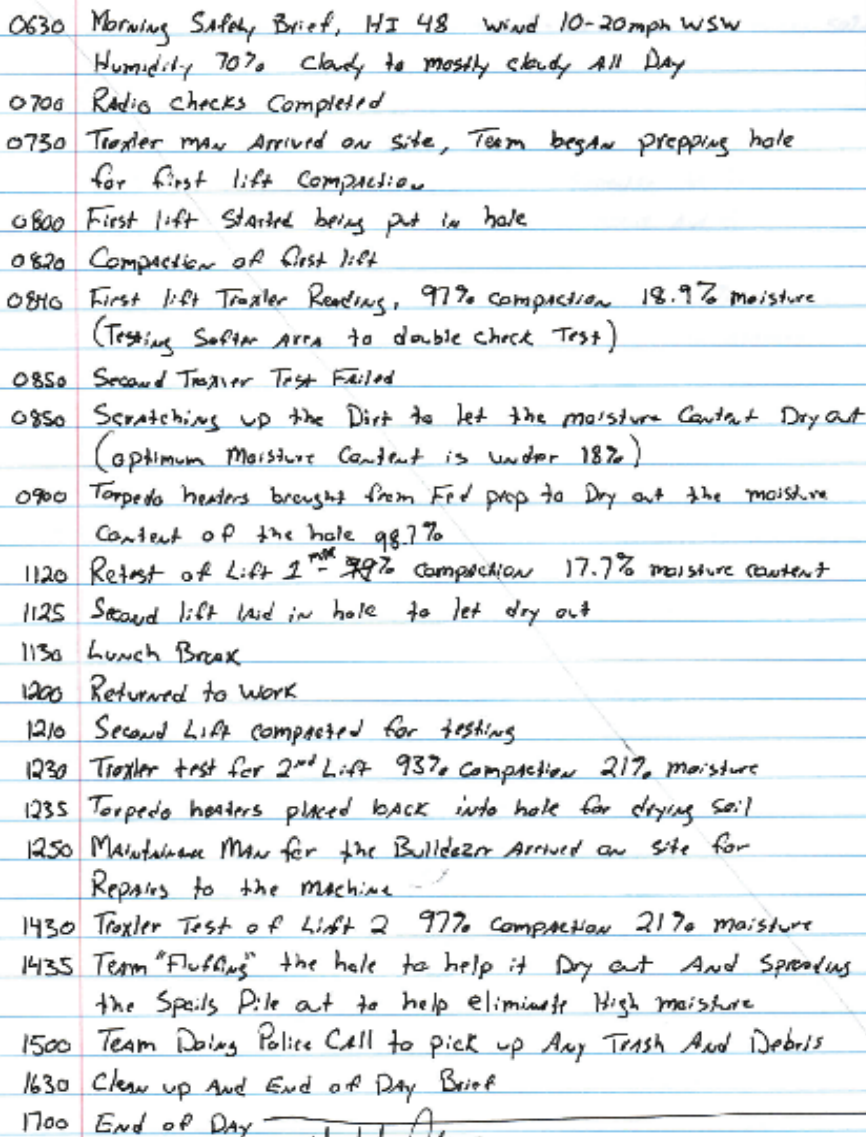 0630 Morning Safety Brief, HI 48 wind 10-20mph WSW
Humidity 70% Cloudy to mostly cloudy All Day
0700 Radio checks Completed
0730 Troxler man Arrived on site, Team began prepping hole
for first lift compaction
0800 First lift Started being put in hole
0820 Compaction of first lift
0840 First lift Troxler Reading, 97% compaction 18.9% moisture
(Testing Softer Area to double check Test)
0850 Second Troxler Test Failed
0850 Scratching up the Dirt to let the moisture Content Dry out
(optimum Moisture Content is under 18%)
0900 Torpedo heaters brought from Fed prep to Dry out the moisture
Content of the hole 98.7%
1120 Retest of Lift 1 - compaction 17.7% moisture content
1125 Second lift laid in hole to let dry out
1130 Lunch Break
1200 Returned to Work
1210 Second Lift compacted for testing
1230 Troxler test for 2nd Lift 93% Compaction 21% moisture
1235 Torpedo heaters placed back into hole for drying soil
1250 Maintainance Man for the Bulldozer Arrived on site for
Repairs to the machine
1430 Troxler Test of Lift 2 97% Compaction 21% moisture
1435 Team "Fluffing" the hole to help it Dry out And Spreading
the Spoils Pile out to help eliminate High moisture
1500 Team Doing Police Call to pick up Any Trash And Debris
1630 Clean up And End of Day Brief
1700 End of Day